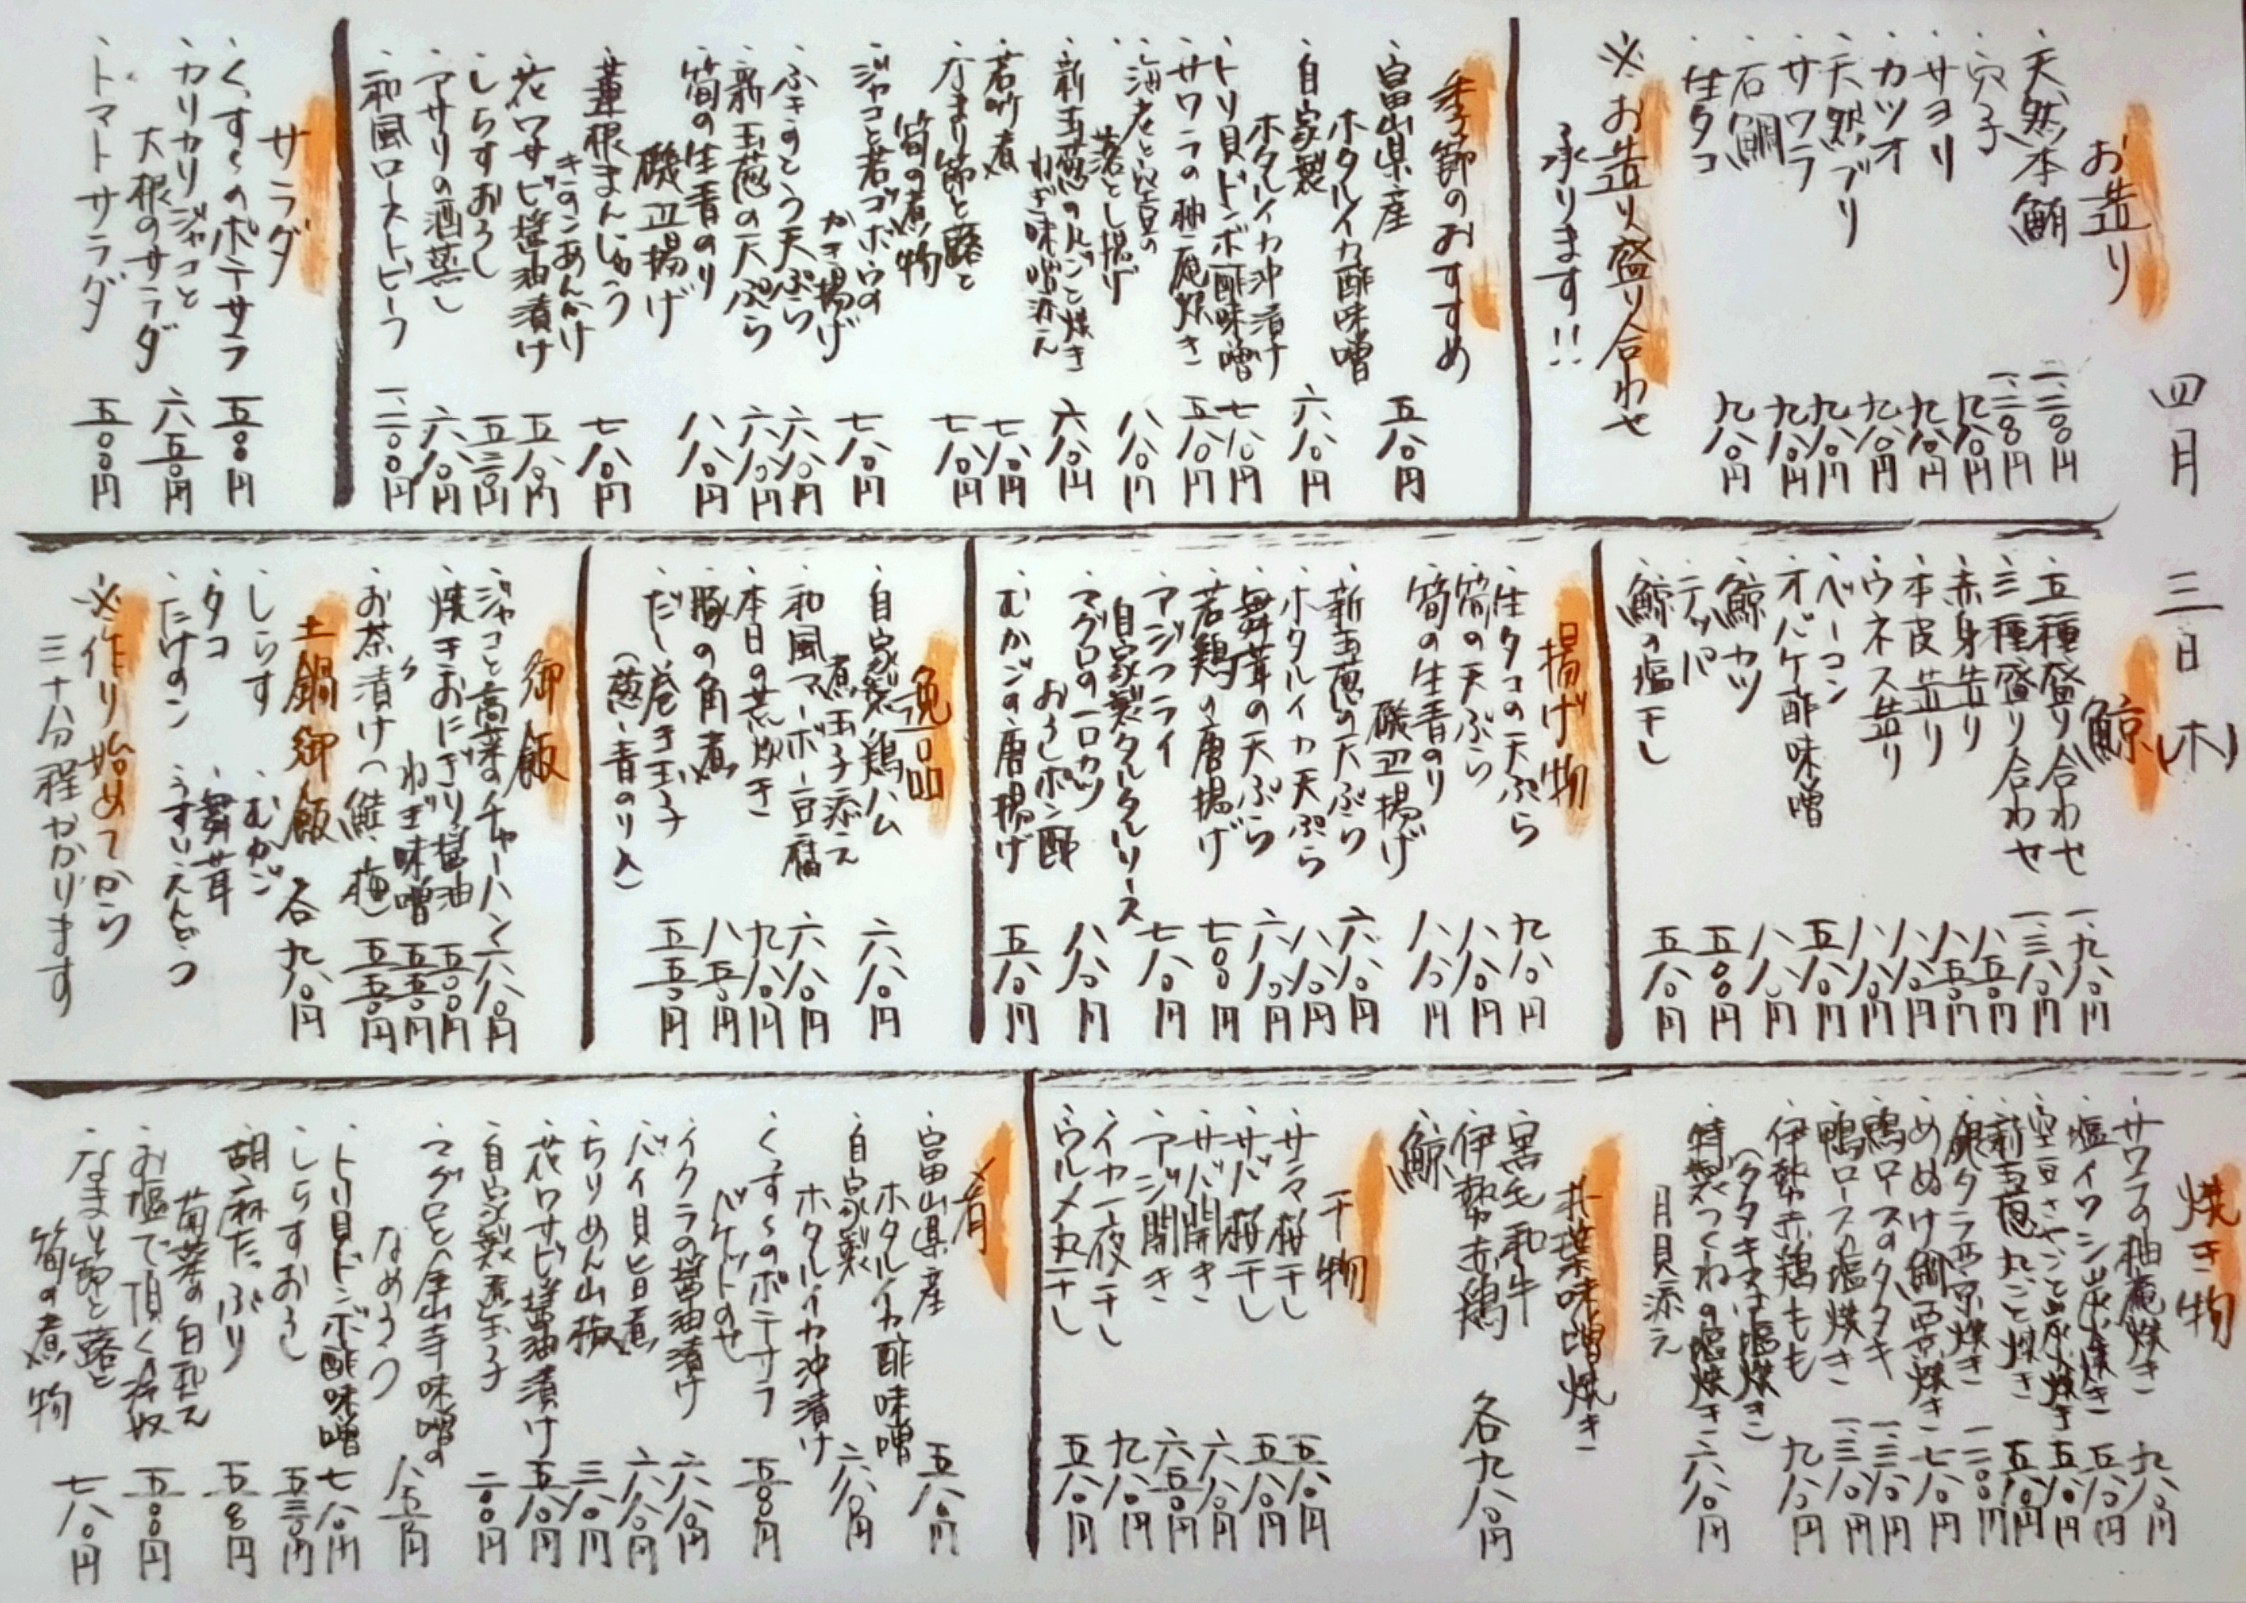 四月三日(木)
お造り
・天然本鮪 一、二〇〇円
・穴子 一、二八〇円
・サヨリ 九八〇円
・カツオ 九八〇円
・天然ブリ 九八〇円
・サワラ 九八〇円
・石鯛 九八〇円
・生タコ 九八〇円
※お造り盛り合わせ
承ります!!
季節のおすすめ
・富山県産
ホタルイカ酢味噌 五八〇円
・自家製
ホタルイカ沖漬け 六八〇円
・トリ貝ドンボ酢味噌 七八〇円
・サワラの柚庵焼き 五八〇円
・海老と空豆の
落とし揚げ 八八〇円
・新玉葱の丸ごと焼き
ねぎ味噌添え 六八〇円
・若竹煮 七八〇円
・なまり節と蕗と
筍の煮物 七八〇円
・ジャコと若ゴボウの
かき揚げ 七八〇円
・ふきのとう天ぷら 六八〇円
・新玉葱の天ぷら 六八〇円
・筍の生青のり
磯辺揚げ 八八〇円
・蓮根まんじゅう
きのこあんかけ 七八〇円
・花ワサビ醤油漬け 五八〇円
・しらすおろし 五三〇円
・アサリの酒蒸し 六八〇円
・和風ローストビーフ 一、二〇〇円
サラダ
・くすくのポテサラ 五〇〇円
・カリカリジャコと
大根のサラダ 六五〇円
・トマトサラダ 五〇〇円
鯨
・五種盛り合わせ 一、九八〇円
・三種盛り合わせ 一、三八〇円
・赤身造り 八五〇円
・本皮造り 八五〇円
・ウネス造り 八八〇円
・ベーコン 八八〇円
・オバケ酢味噌 五八〇円
・鯨カツ 八八〇円
・テッパ 五〇〇円
・鯨の塩干し 五八〇円
揚げ物
・生タコの天ぷら 九八〇円
・筍の天ぷら 八八〇円
・筍の生青のり
磯辺揚げ 八八〇円
・新玉葱の天ぷら 六八〇円
・ホタルイカ天ぷら 八八〇円
・舞茸の天ぷら 六八〇円
・若鶏の唐揚げ 七〇〇円
・アジフライ
自家製タルタルソース 七八〇円
・マグロの一口カツ
おろしポン酢 八八〇円
・むかごの唐揚げ 五八〇円
逸品
・自家製鶏ハム
煮玉子添え 六八〇円
・和風マーボー豆腐 六八〇円
・本日の荒炊き 九八〇円
・豚の角煮 八五〇円
・だし巻き玉子
(葱・青のり入) 五五〇円
御飯
・ジャコと高菜のチャーハン 六八〇円
・焼きおにぎり醤油 五〇〇円
〃 ねぎ味噌 五五〇円
・お茶漬け(鮭・梅) 五五〇円
土鍋御飯 各九八〇円
・しらす ・むかご
・タコ ・舞茸
・たけのこ ・うすいえんどう
※作り始めてから
三十分程かかります
焼き物
・サワラの柚庵焼き 九八〇円
・塩イワシ炭焼き 五八〇円
・空豆さやごと炭焼き 五八〇円
・新玉葱丸ごと焼き 五八〇円
・銀タラ西京焼き 一、二〇〇円
・めぬけ鯛西京焼き 七八〇円
・鴨ロースのタタキ 一、三八〇円
・鴨ロース塩焼き 一、三八〇円
・伊勢赤鶏もも
(タタキ又は塩焼き) 九八〇円
・特製つくねの塩焼き 六八〇円
月見添え
朴葉味噌焼き
・黒毛和牛
・伊勢赤鶏 各九八〇円
・鯨
干物
・サンマ桜干し 五八〇円
・サバ桜干し 五八〇円
・サバ開き 六八〇円
・アジ開き 六五〇円
・イカ一夜干し 九八〇円
・ウルメ丸干し 五八〇円
肴
・富山県産
ホタルイカ酢味噌 五八〇円
・自家製
ホタルイカ沖漬け 六八〇円
・くすくのポテサラ
バケットのせ 五〇〇円
・イクラの醤油漬け 六八〇円
・バイ貝旨煮 六八〇円
・ちりめん山椒 三八〇円
・花ワサビ醤油漬け 五八〇円
・自家製煮玉子 二〇〇円
・マグロと金山寺味噌の
なめろう 八五〇円
・トリ貝ドンボ酢味噌 七八〇円
・しらすおろし 五三〇円
・胡麻たっぷり
菊菜の白和え 五〇〇円
・お塩で頂く冷奴 五〇〇円
・なまり節と蕗と
筍の煮物 七八〇円